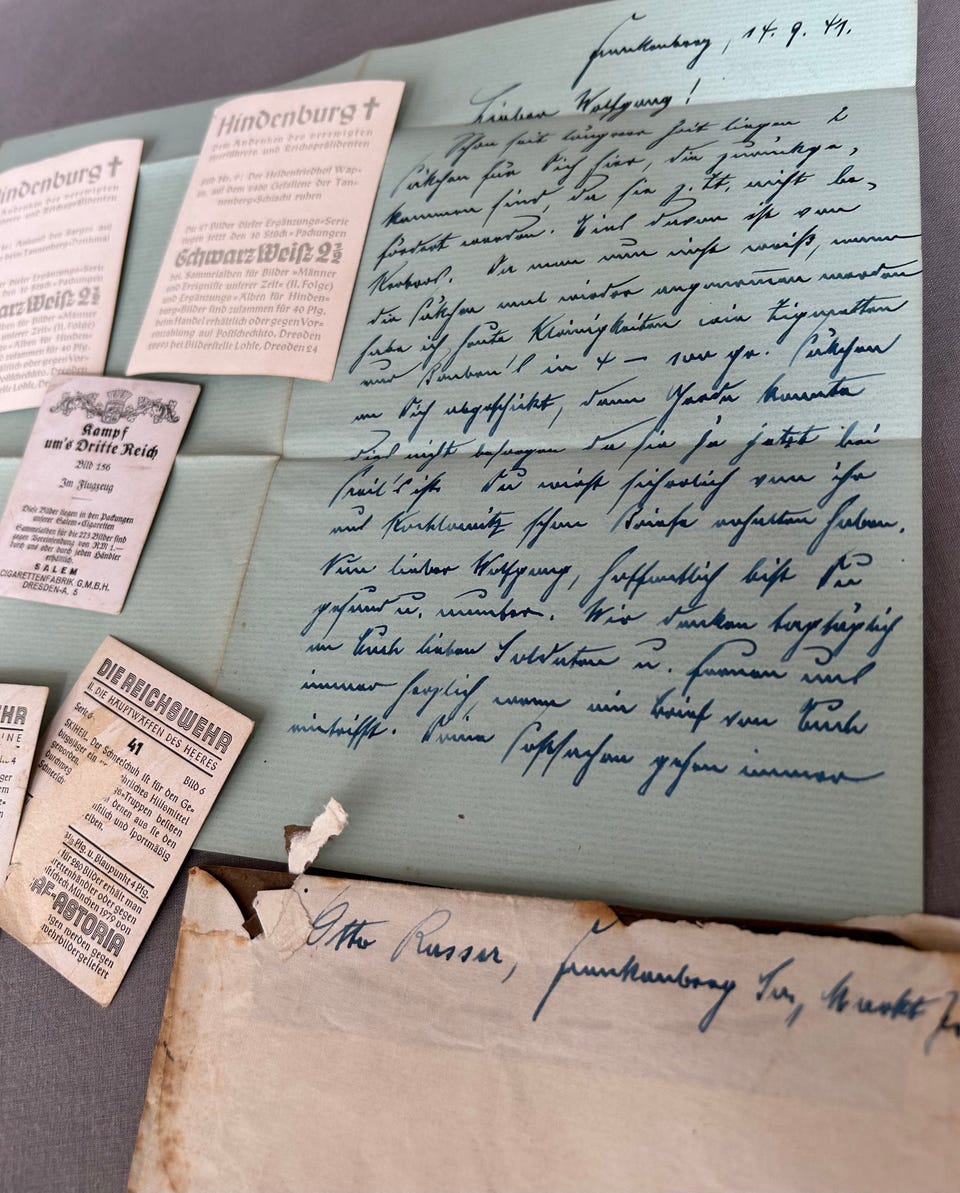 Frankenberg, 14. 9. 41.
Lieber Wolfgang!
Schon seit längerer Zeit liegen 2
Päckchen für Dich hier, die zurückge-
kommen sind, da sie z. Zt. nicht be-
fördert werden. Eins davon ist von
Da man nun nicht weiß, wann
die Päckchen mal wieder angenommen werden
habe ich heute Kleinigkeiten wie Zigaretten
und Bonbon's in 4 – 100 gr. Päckchen
an Dich abgeschickt, denn Gerda konnte
dies nicht besorgen da sie ja jetzt bei
ist. Du wirst sicherlich von ihr
und schon Briefe erhalten haben.
Nun lieber Wolfgang, hoffentlich bist Du
gesund u. munter. Wir denken tagtäglich
an Euch lieben Soldaten u. freuen uns
immer herzlich, wenn ein Brief von Euch
eintrifft. Deine Postsachen gehen immer
Hindenburg ✝
Dem Andenken des verewigten
Heerführers und Reichspräsidenten
Bild Nr. 9: Der Heldenfriedhof Wap-
litz, auf dem 1400 Gefallene der Tan-
nenberg-Schlacht ruhen
Die 87 Bilder dieser Ergänzungs-Serie
liegen jetzt den 36 Stück-Packungen
Schwarz Weiß 2½
bei. Sammelalben für Bilder »Männer
und Ereignisse unserer Zeit« (II. Folge)
und Ergänzungs-Alben für Hinden-
burg-Bilder sind zusammen für 40 Pfg.
beim Handel erhältlich oder gegen Vor-
einzahlung auf Postscheckkto. Dresden
bei Bilderstelle Lohse, Dresden 24
indenburg ✝
Dem Andenken des verewigten
Heerführers und Reichspräsidenten
Ankunft des Sarges am
dieser Ergänzungs-Serie
den 36 Stück-Packungen
arz Weiß 2½
für Bilder »Männer
unserer Zeit« (II. Folge)
Alben für Hinden-
zusammen für 40 Pfg.
erhältlich oder gegen Vor-
Postscheckkto. Dresden
Lohse, Dresden
Kampf
um's Dritte Reich
Bild 156
Im Flugzeug
Diese Bilder liegen in den Packungen
unserer Salem-Cigaretten
Sammelalben für die 273 Bilder sind
gegen Voreinsendung von RM 1.—
durch uns oder durch jeden Händler
erhältlich.
SALEM
CIGARETTENFABRIK G.M.B.H.
DRESDEN-A. 5
DIE REICHSWEHR
II. DIE HAUPTWAFFEN DES HEERES
Serie 6 41 Bild 6
SKIHEIL. Der Schneeschuh ist für den Ge-
birgsjäger ein hrliches Hilfsmittel
geworden. s-Truppen besitzen
durchweg denen aus sie den
Schneesch ftlich und sportmäßig
eiben.
Pfg. u. Blaupunkt 4 Pfg.
für 280 Bilder erhält man
rettenhändler oder gegen
scheck München 1979 von
AF-ASTORIA
gen werden gegen
wehrbilder geliefert
HR
INE
Otto Rasser, Frankenberg Sa., Markt